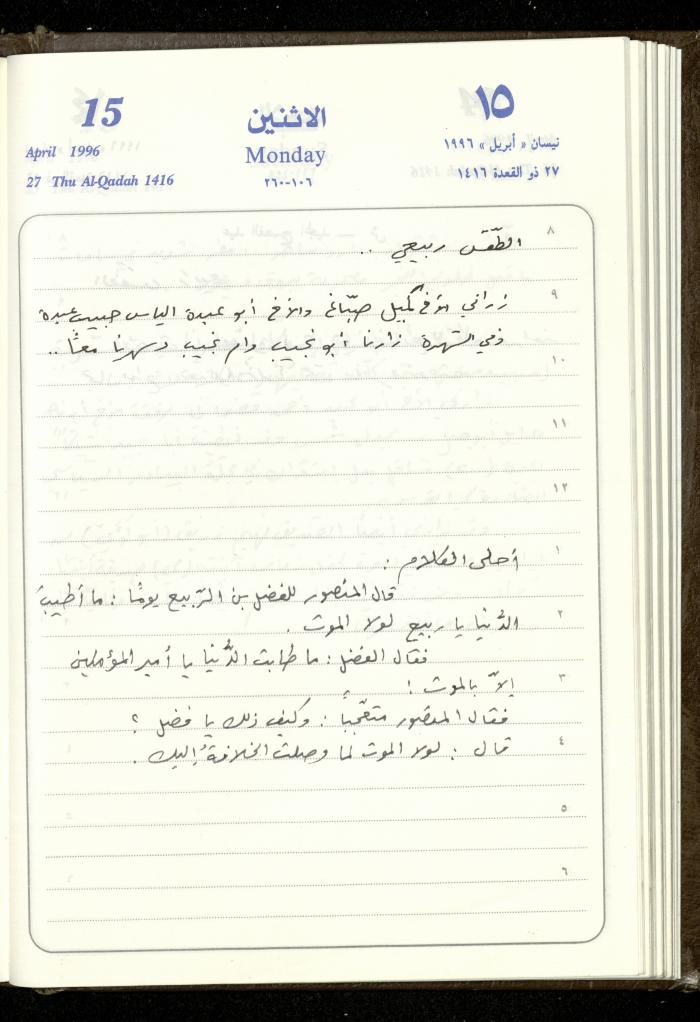 15 الاثنين ١٥
April 1996 Monday نيسان « أبريل » ١٩٩٦
27 Thu Al-Qadah 1416 ٢٦٠-١٠٦ ٢٧ ذو القعدة ١٤١٦
٨ الطّقس ربيعي ..
٩ زراني الأخ كميل صبّاغ والأخ أبو عبدة الياس حبيب عبدة
وفي السّهرة زارنا أبو نجيب وام نجيب وسهرنا معًا ..
١٠
١١
١٢
١ أحلى الكلام :
قال المنصور للفضل بن الرّبيع يومًا : ما أطيبَ
٢ الدُّنيا يا ربيع لولا الموت .
فقال الفضل : ما طابت الدُّنيا يا أمير المؤمنين
٣ إلاّ بالموت !
فقال المنصور متعجّبًا : وكيف ذلك يا فضل ؟
٤ قال : لولا الموت لما وصلت الخلافةُ إليك .
٥
٦